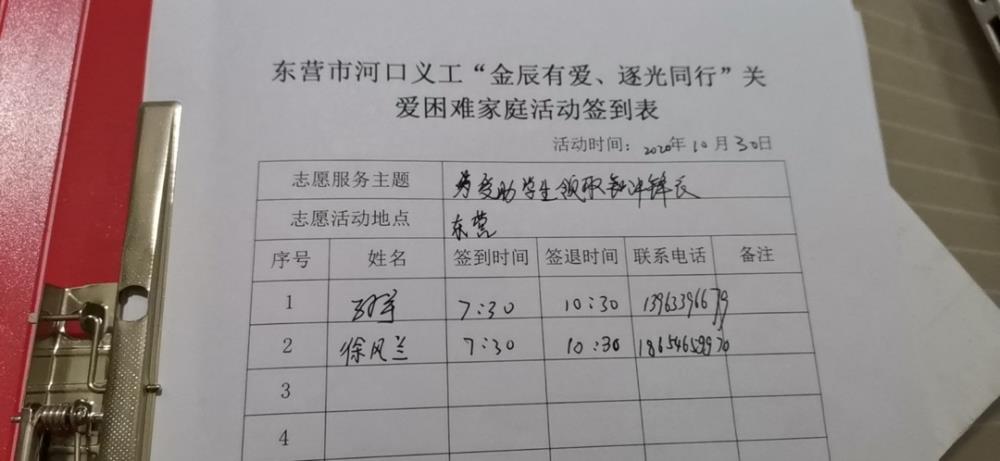 东营市河口义工“金辰有爱、逐光同行”关
爱困难家庭活动签到表
活动时间：2020年10月30日
志愿服务主题 为受助学生领取 冲锋衣
志愿活动地点 东营
序号 姓名 签到时间 签退时间 联系电话 备注
1 7:30 10:30 13963396679
2 徐风兰 7:30 10:30
3
4